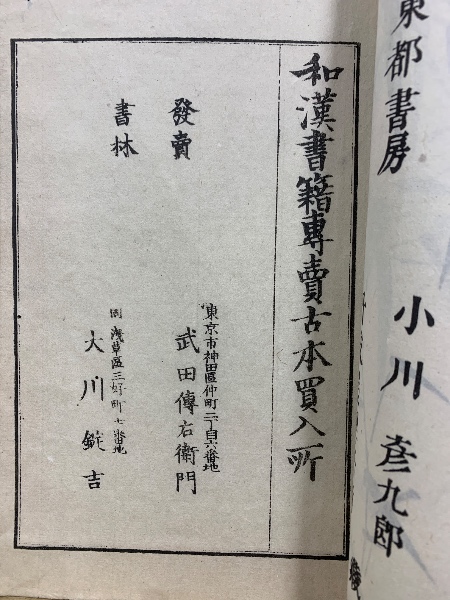 東都書房 小川彦九郎
和漢書籍專賣古本買入所
發賣
書林
東京市神田區仲町二丁目六番地
武田傳右衞門
同淺草區三好町七番地
大川錠吉